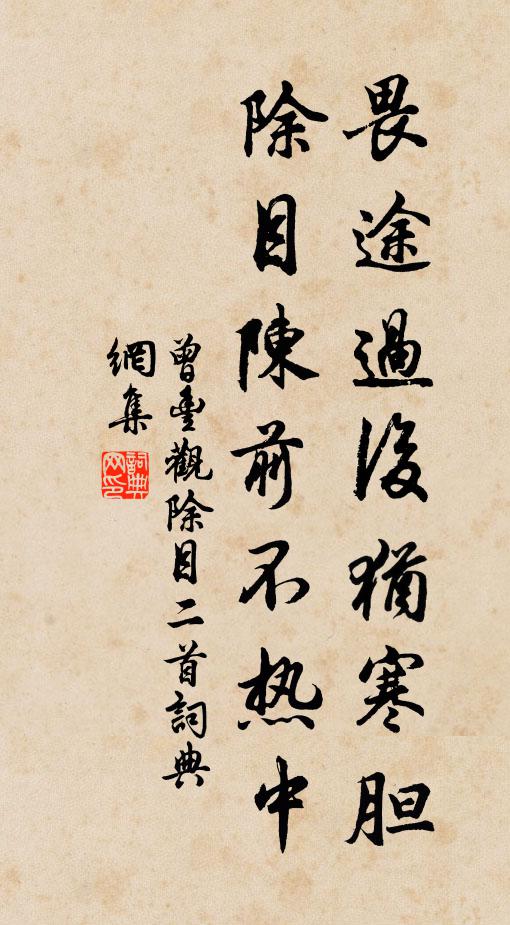 畏途過後猶寒胆
除目陳前不热中
曾豊觀除目二首詞典
網集
詞典
网印